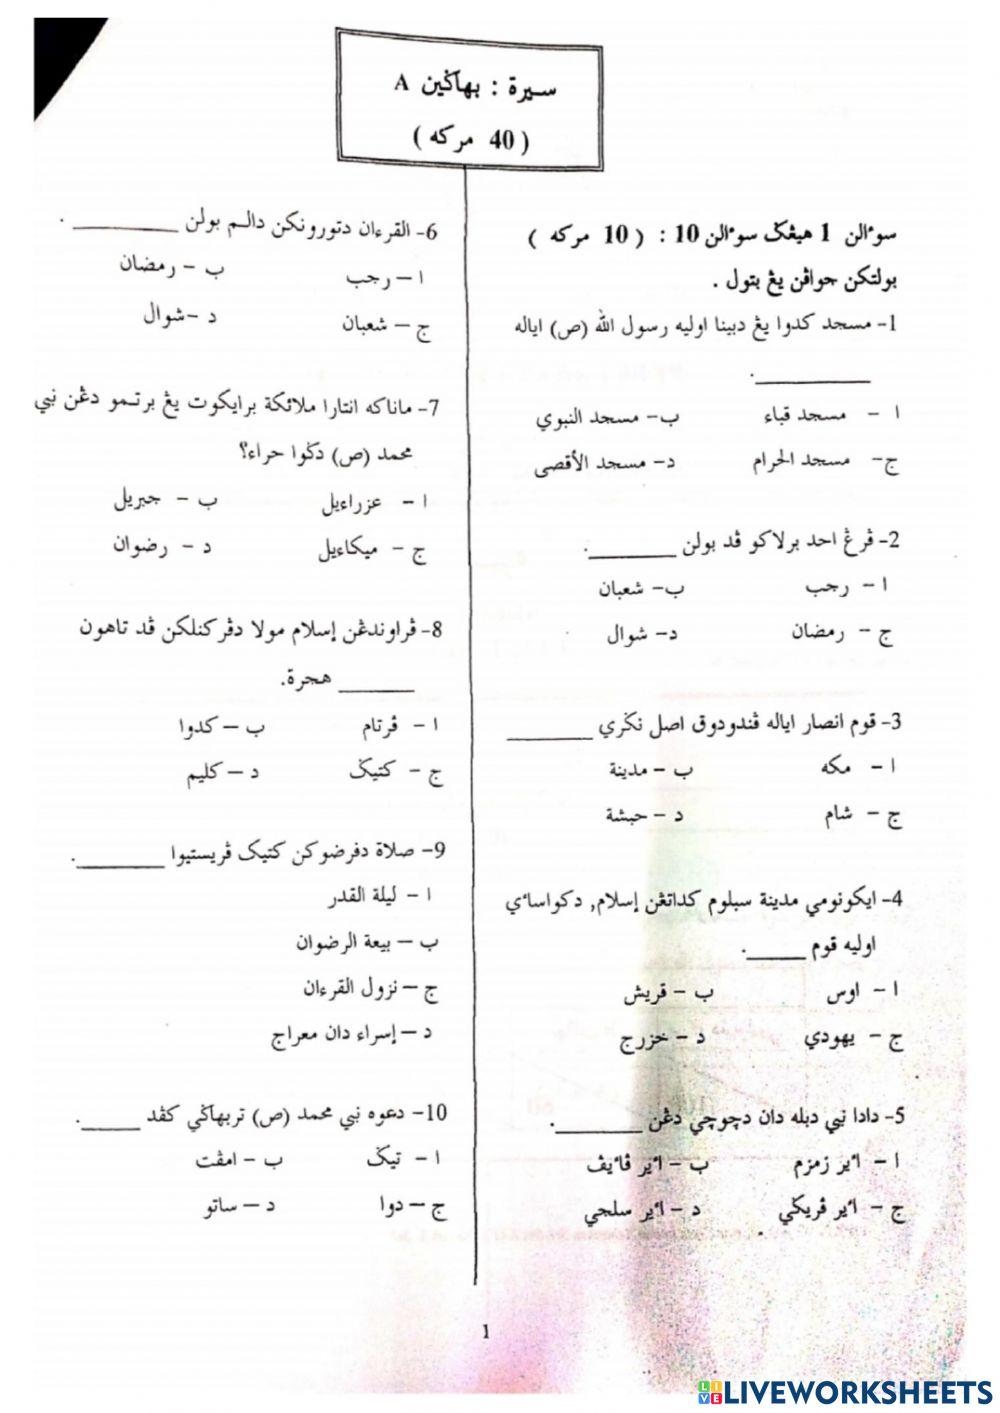 سيرة : بهاݢين A
( 40 مركه )
سوءالن 1 هيڠݢ سوءالن 10 : ( 10 مركه )
بولتكن جواڤن يڠ بتول .
1- مسجد كدوا يڠ دبينا اوليه رسول الله (ص) اياله
________.
ا - مسجد قباء ب- مسجد النبوي
ج- مسجد الحرام د- مسجد الأقصى
2- ڤرڠ احد برلاكو ڤد بولن ________.
ا - رجب ب- شعبان
ج - رمضان د- شوال
3- قوم انصار اياله ڤندودوق اصل نݢري ________
ا - مكه ب - مدينة
ج - شام د - حبشة
4- ايكونومي مدينة سبلوم كداتڠن إسلام, دكواساءي
اوليه قوم ______.
ا - اوس ب - قريش
ج - يهودي د - خزرج
5- دادا نبي دبله دان دچوچي دڠن ________.
ا - اءير زمزم ب - اءير ڤاءيڤ
ج - اءير ڤريݢي د - اءير سلجي
6- القرءان دتورونكن دالم بولن ________ .
ا - رجب ب - رمضان
ج - شعبان د -شوال
7- ماناكه انتارا ملائكة برايكوت يڠ برتمو دڠن نبي
محمد (ص) دݢوا حراء؟
ا - عزراءيل ب - جبريل
ج - ميكاءيل د - رضوان
8- ڤراوندڠن إسلام مولا دڤركنلكن ڤد تاهون
______ هجرة.
ا - ڤرتام ب - كدوا
ج - كتيݢ د - كليم
9- صلاة دفرضوكن كتيک ڤريستيوا ________.
ا - ليلة القدر
ب - بيعة الرضوان
ج - نزول القرءان
د - إسراء دان معراج
10- دعوه نبي محمد (ص) تربهاݢي كڤد ______.
ا - تيݢ ب - امڤت
ج - دوا د - ساتو
1
LIVEWORKSHEETS